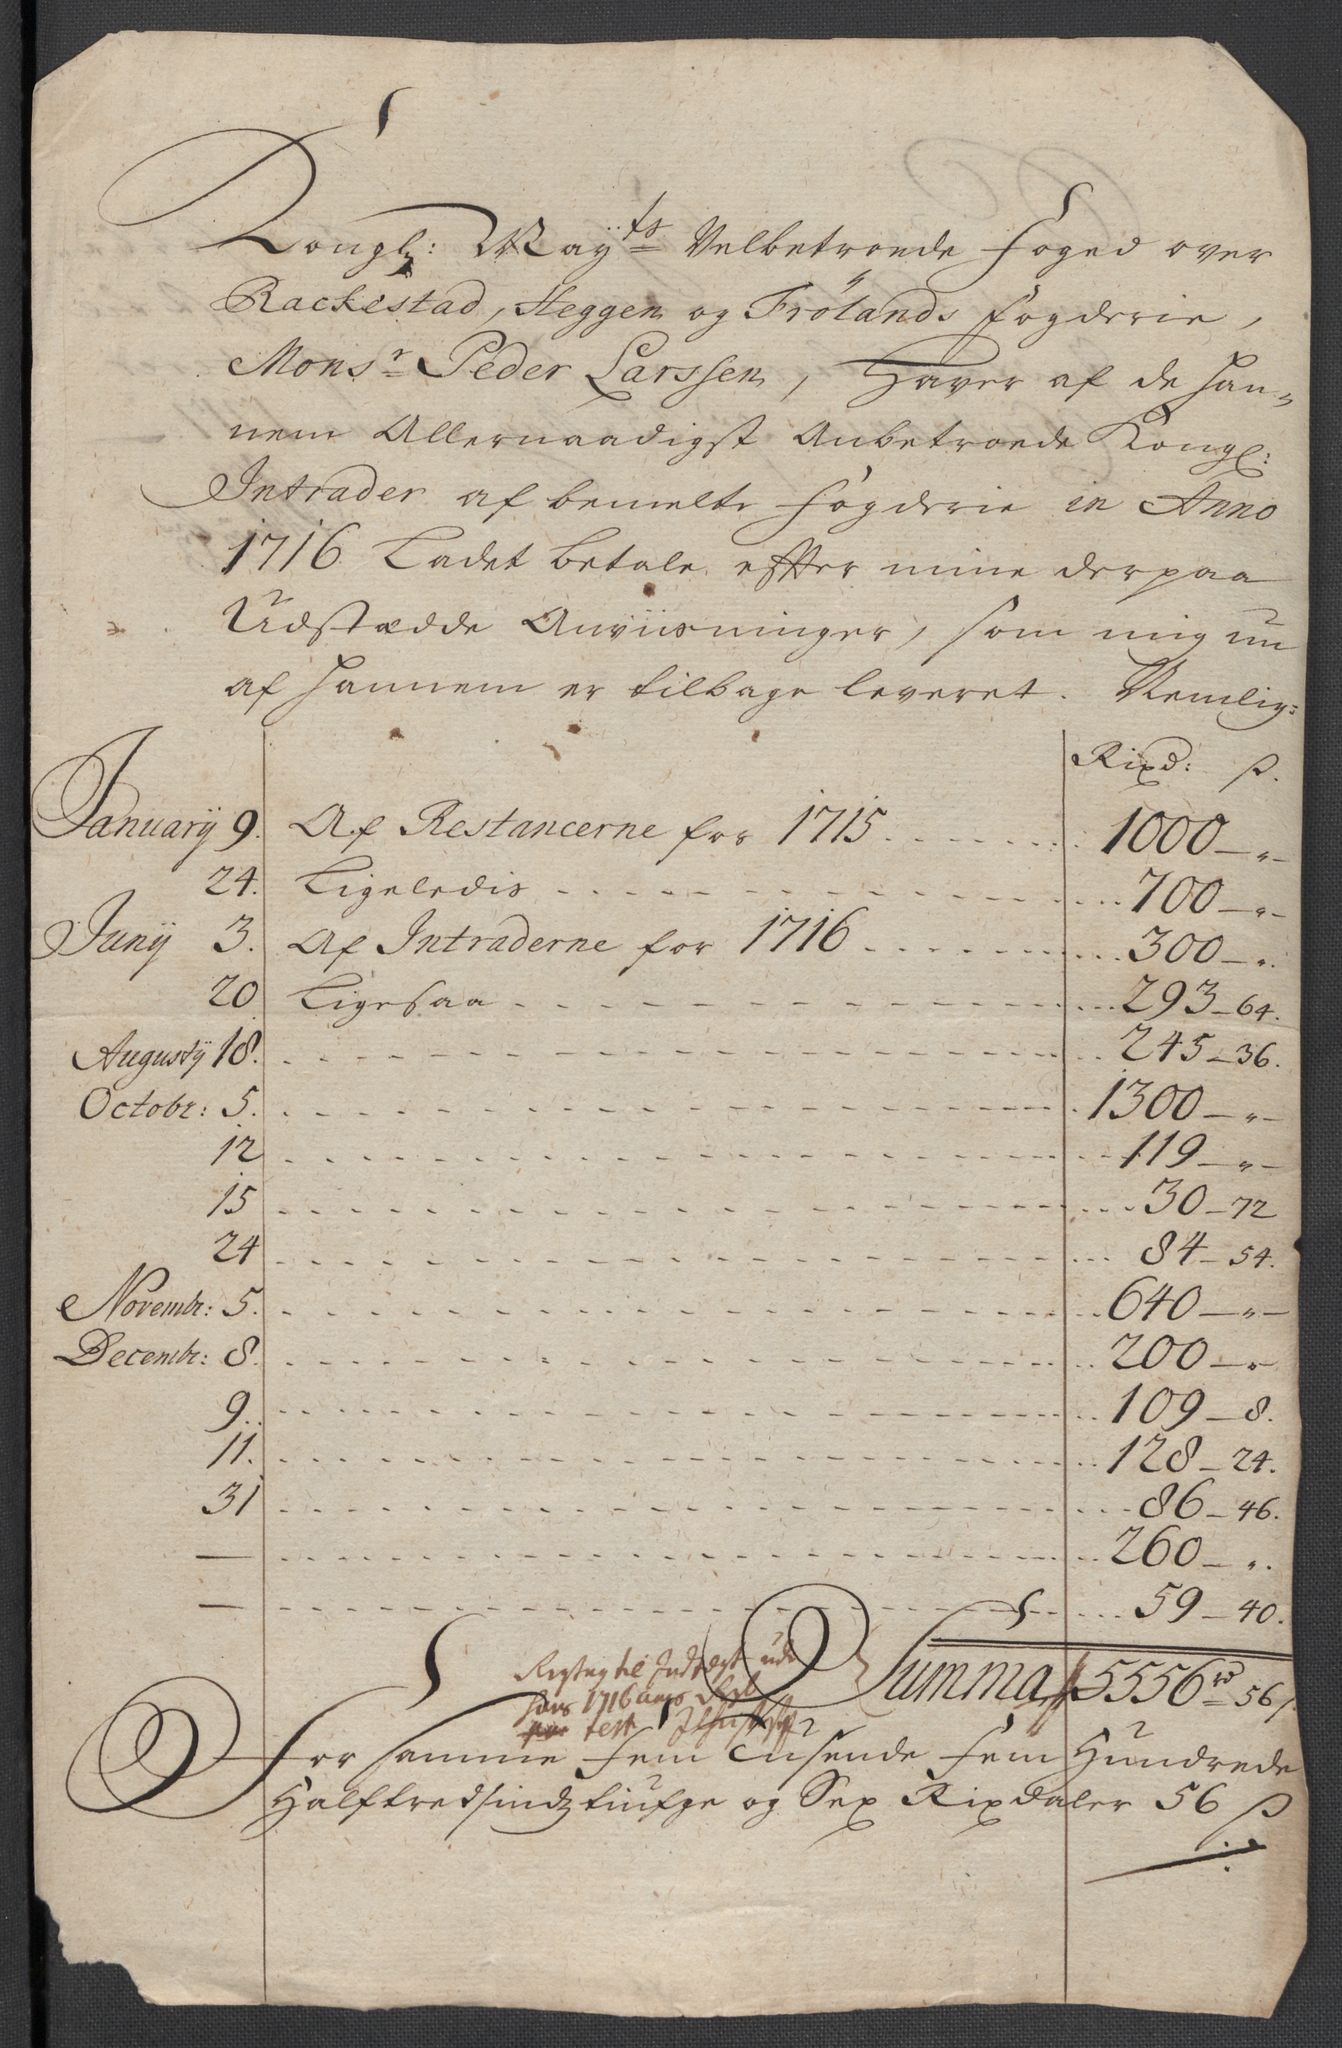 Kongl: Mayts Velbetroede foged over
Rackestad, Heggen og Frølands fogderie,
Monsr Peder Larssen, Haver af de han-
nem Allernaadigst Anbetroede Kongl:
Intrader af bemelte fogderie in Anno
1716 Ladet betale effter mine derpaa
Udstædde Anviisninger, som mig nu
af hannem er tilbage leveret. Nemlig:
Rixd: ß.
January 9. Af Restancerne for 1715 1000 - "-
24. Ligeledis 700 - "-
Junij 3. Af Intraderne for 1716 300 - ".
20 Ligesaa 293 - 64.
Augustij 18. 245 - 36.
Octobr: 5. 1300 - "-
12 119 - "-
15 30 - 72
24 84 - 54.
Novembr: 5. 640 - "-
Decembr: 8. 200 - "-
9. 109 - 8.
11. 128 - 24.
31 86 - 46.
— 260 - ".
— 59 - 40.
til Indtegt udi
1716
Summa 5556 rd 56 ß
For samme fem Tusende fem Hundrede
Halftredsindztiufge og Sex Rixdaler 56 ß